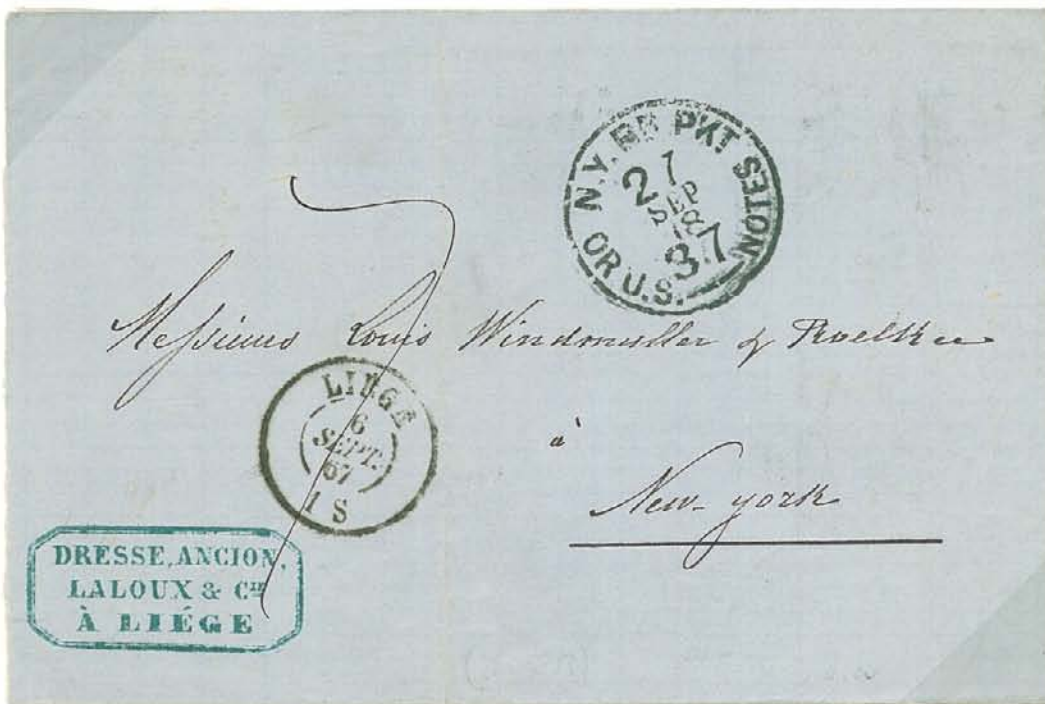 N.Y. BR PKT
27
SEP
18
37
OR U.S. NOTES
Messieurs Louis Windmuller & Roelker
LIÉGE
6
SEPT.
67
1 S
à
New-york
DRESSE, ANCION,
LALOUX & Cie
À LIÉGE